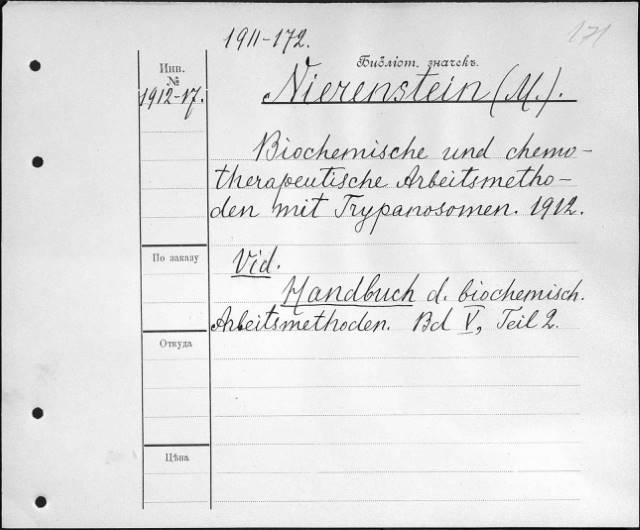 1911-172.
171
Библіот. значекъ.
Инв.
№
1912-17.
Nierenstein (M.).
Biochemische und chemo-
therapeutische Arbeitsmetho-
den mit Trypanosomen. 1912.
По заказу
Vid.
Handbuch d. biochemisch.
Arbeitsmethoden. Bd V, Teil 2.
Откуда
Цѣна